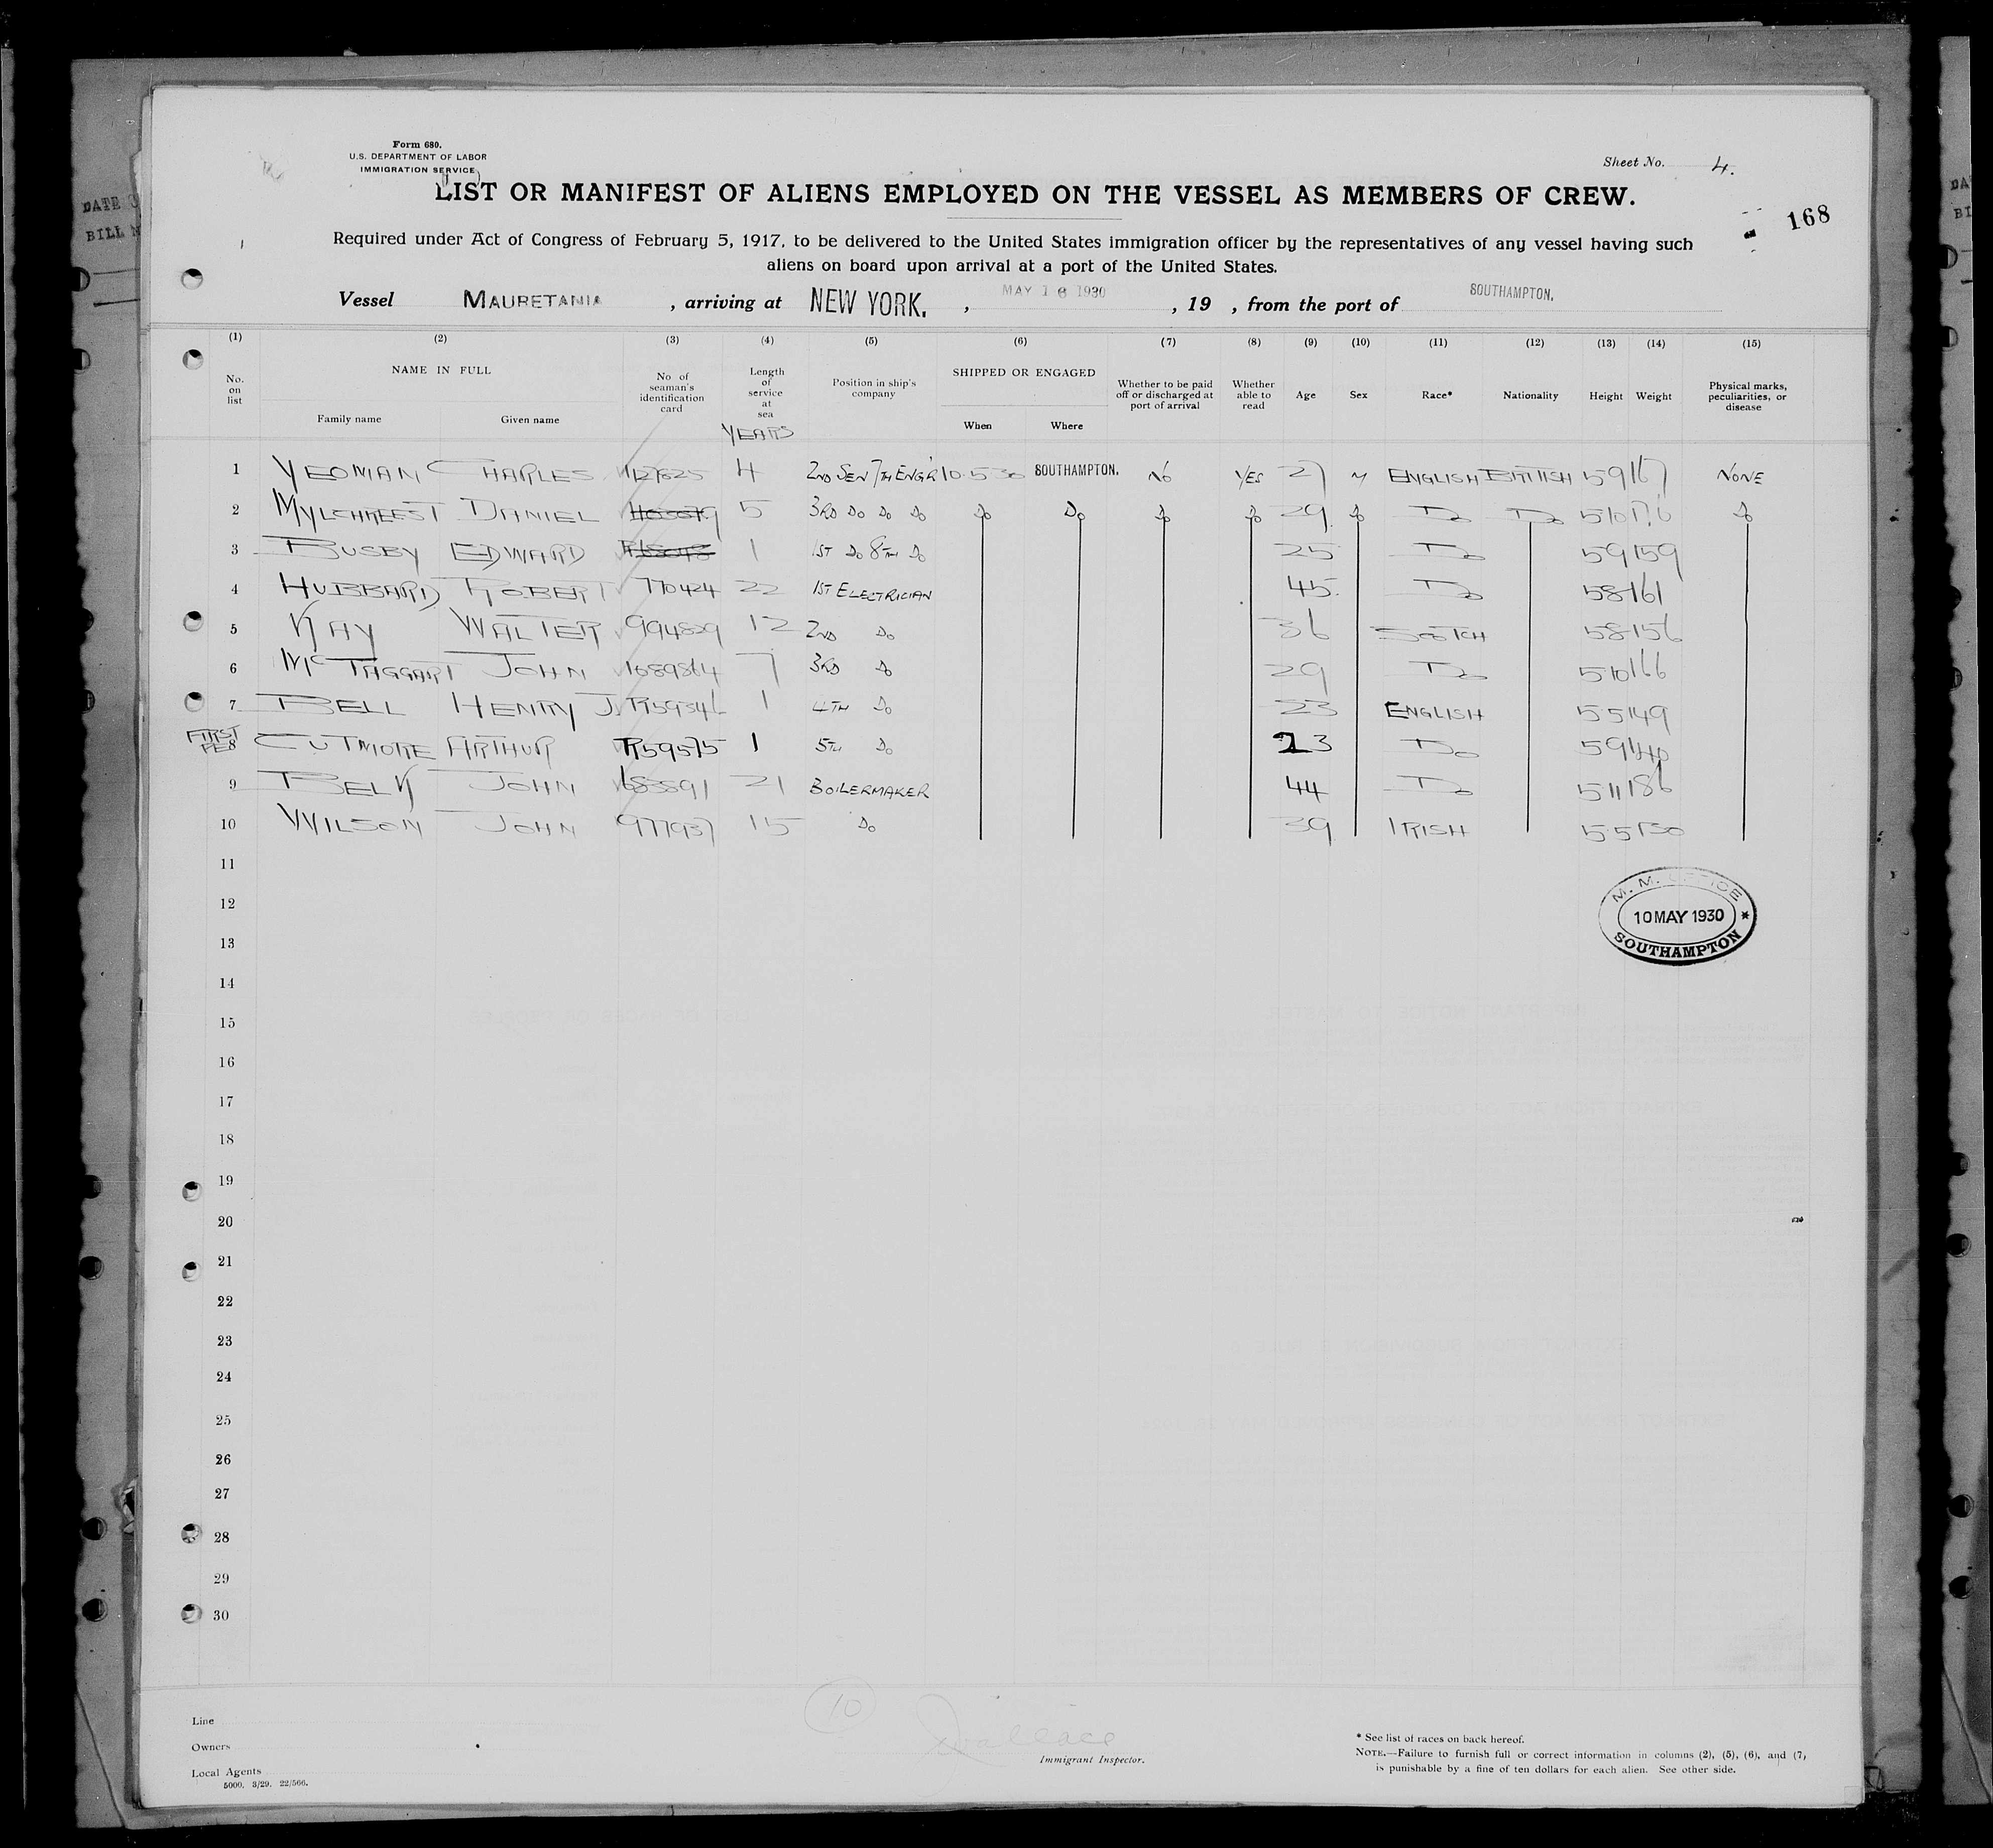 Form 680.
U.S. DEPARTMENT OF LABOR
IMMIGRATION SERVICE
Sheet No. 4.
LIST OR MANIFEST OF ALIENS EMPLOYED ON THE VESSEL AS MEMBERS OF CREW.
168
Required under Act of Congress of February 5, 1917, to be delivered to the United States immigration officer by the representatives of any vessel having such
aliens on board upon arrival at a port of the United States.
Vessel MAURETANIA, arriving at NEW YORK, MAY 16 1930, 19 , from the port of SOUTHAMPTON.
(1) (2) (3) (4) (5) (6) (7) (8) (9) (10) (11) (12) (13) (14) (15)
No. on list NAME IN FULL Family name Given name No of seaman's identification card Length of service at sea YEARS Position in ship's company SHIPPED OR ENGAGED When Where Whether to be paid off or discharged at port of arrival Whether able to read Age Sex Race* Nationality Height Weight Physical marks, peculiarities, or disease
1 YEOMAN CHARLES 4 2ND SEN 7TH ENGR 10.5.30 SOUTHAMPTON. NO YES 27 M ENGLISH BRITISH 59 167 NONE
2 MYLCHREEST DANIEL 5 3RD DO DO DO DO DO DO DO 29 DO DO DO 510 176 DO
3 BUSBY EDWARD 1 1ST DO 8TH DO 25 DO 59 159
4 HUBBARD ROBERT 770424 22 1ST ELECTRICIAN 45 DO 58 161
5 KAY WALTER 994829 12 2ND DO 36 SCOTCH 58 156
6 McTAGGART JOHN 1089864 7 3RD DO 29 DO 510 166
7 BELL HENRY J. R59346 1 4TH DO 23 ENGLISH 55 149
FIRST PE 8 CUTMORE ARTHUR R59575 1 5TH DO 23 DO 59 140
9 BELK JOHN 683591 21 BOILERMAKER 44 DO 511 186
10 WILSON JOHN 977937 15 DO 39 IRISH 55 130
11
12
13
14
15
16
17
18
19
20
21
22
23
24
25
26
27
28
29
30
M. M. OFFICE
10 MAY 1930 *
SOUTHAMPTON
10
Wallace
Immigrant Inspector.
Line
Owners
Local Agents
5000. 3/29. 22/566.
* See list of races on back hereof.
NOTE.—Failure to furnish full or correct information in columns (2), (5), (6), and (7,
is punishable by a fine of ten dollars for each alien. See other side.